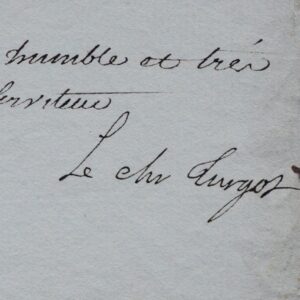 humble et trés
serviteur
Le chr Turgot